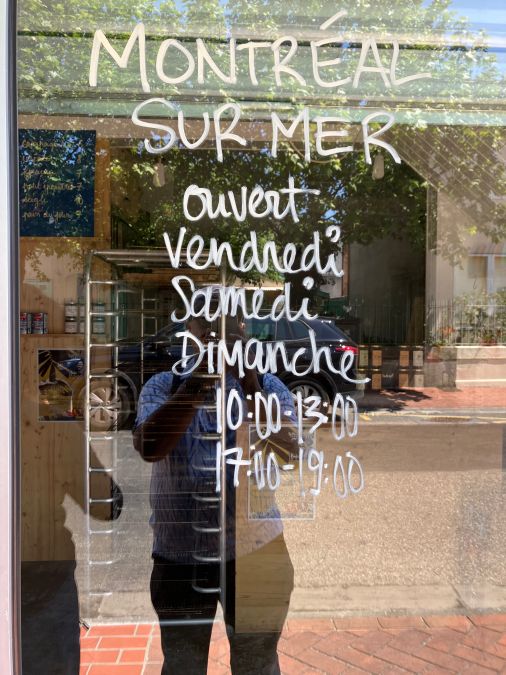 MONTRÉAL
SUR MER
ouvert
Vendredi
Samedi
Dimanche
10:00-13:00
17:00-19:00